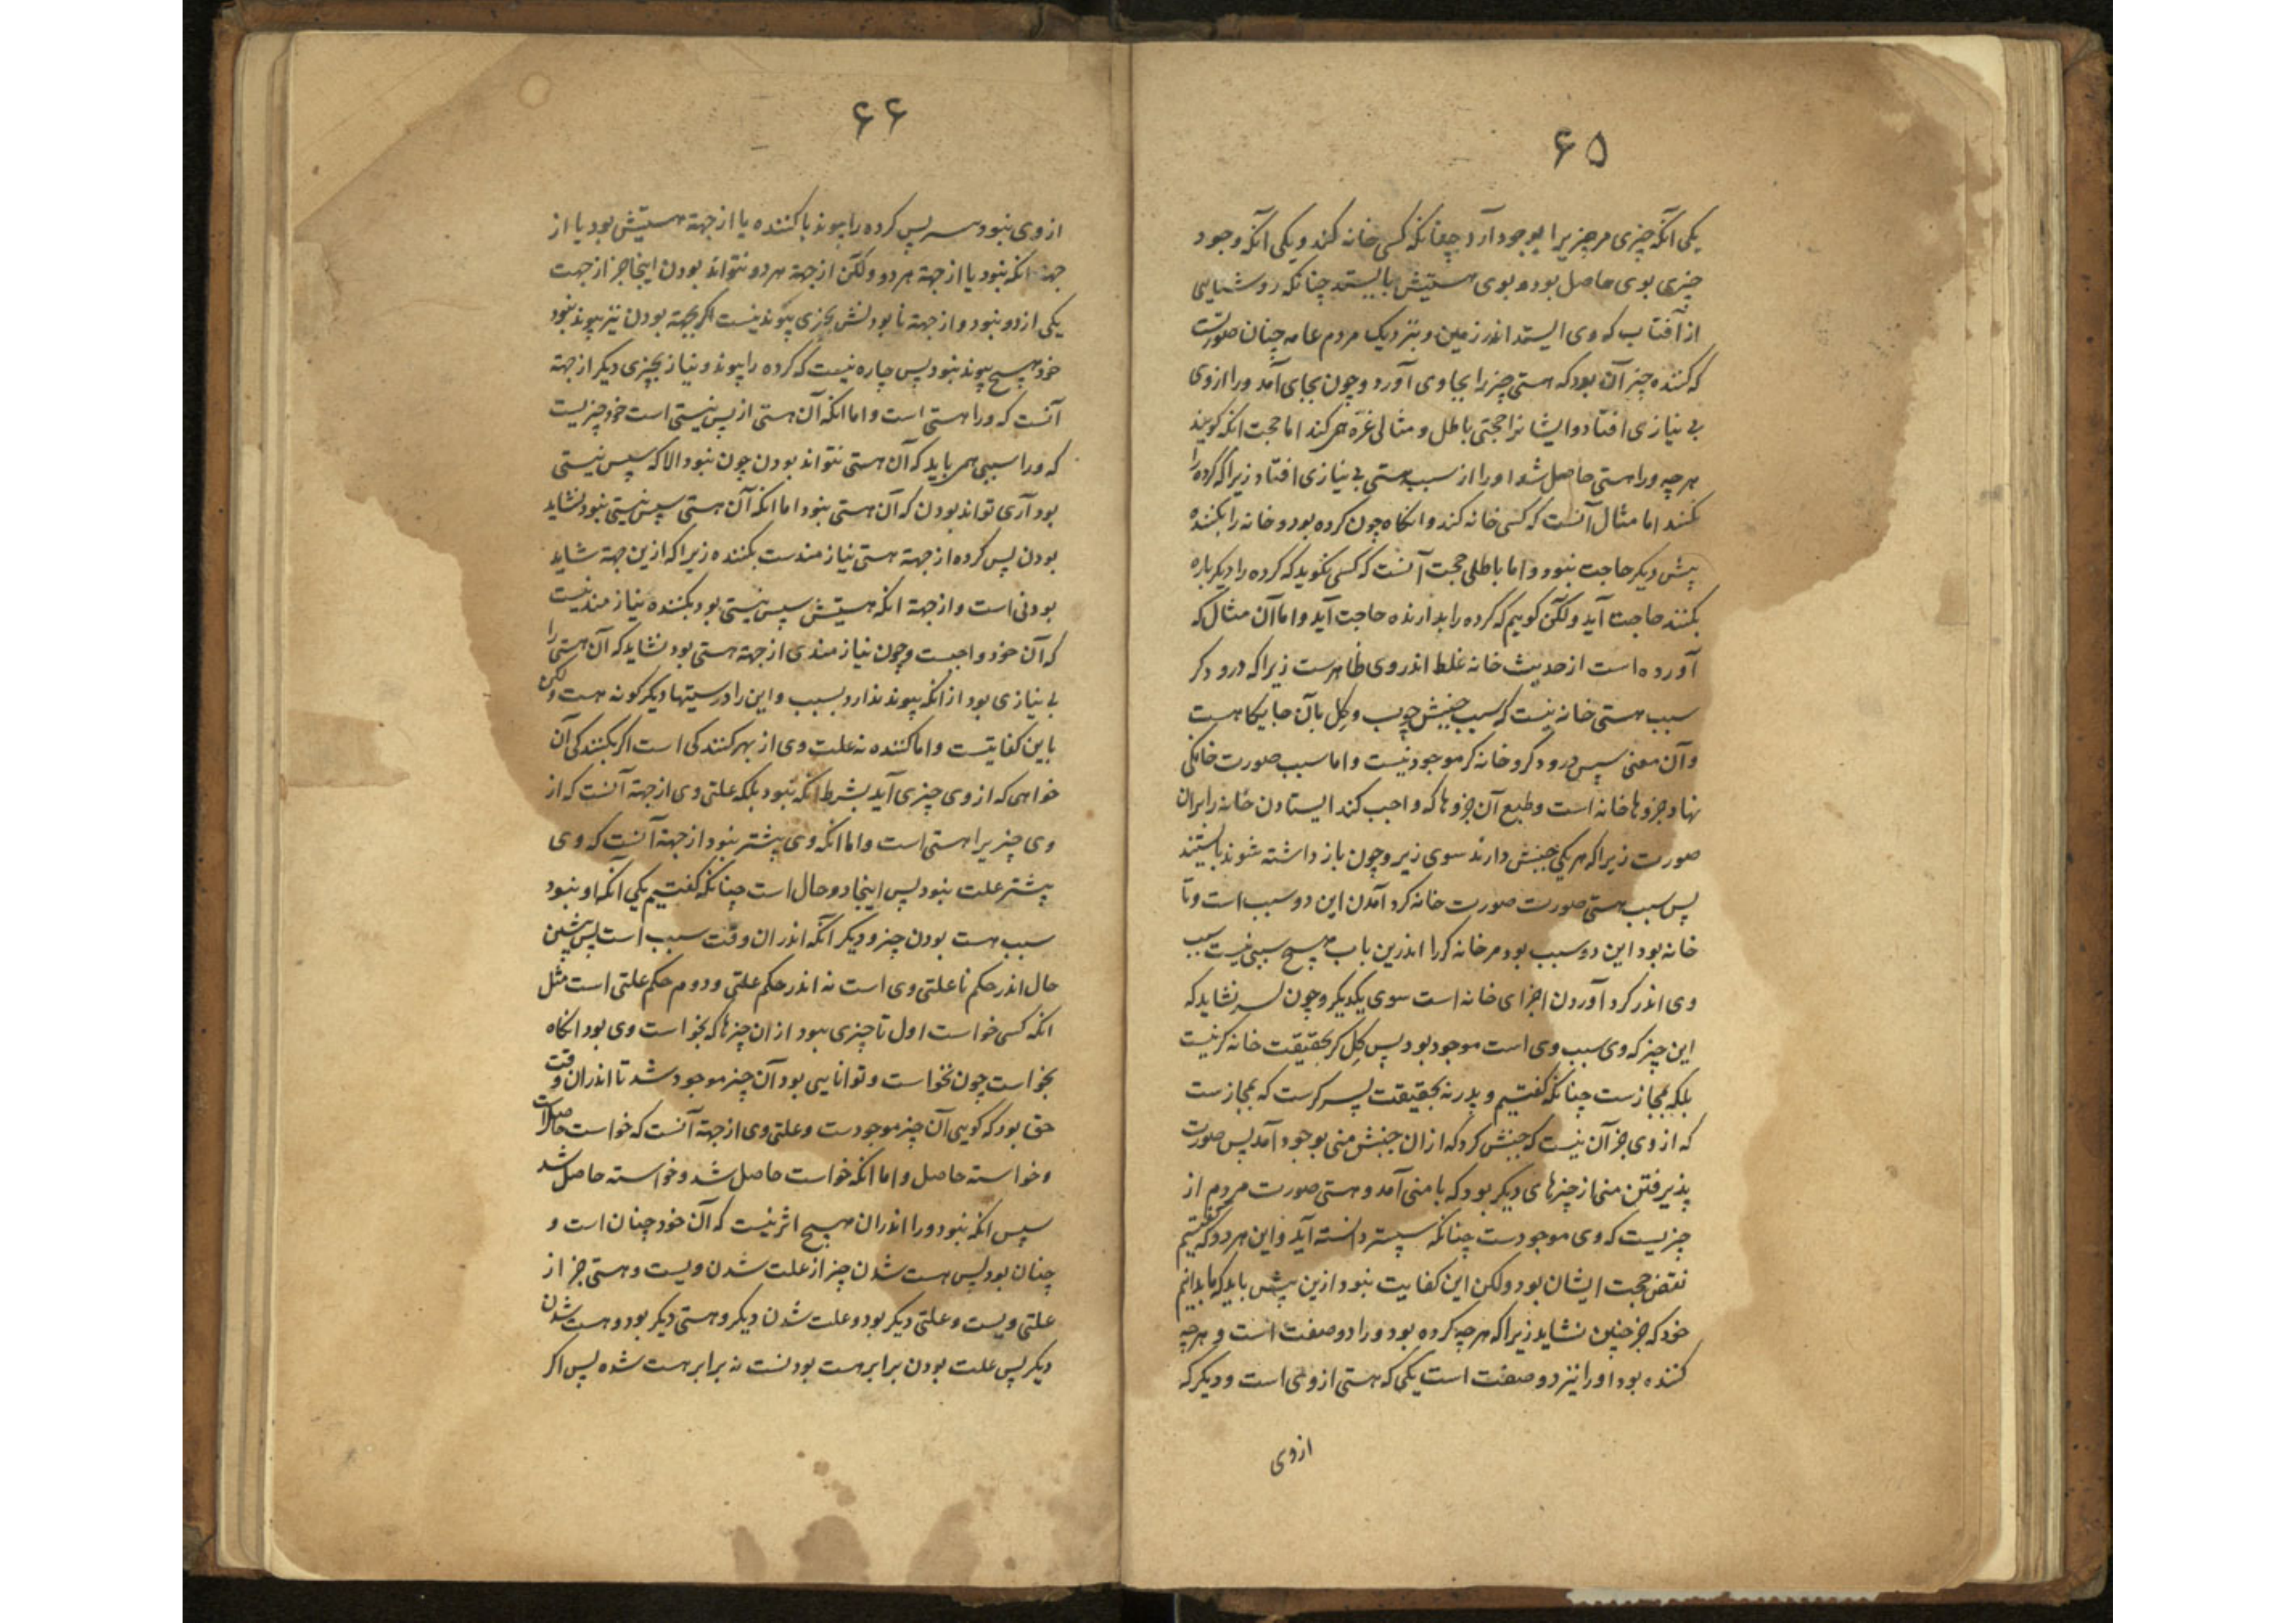 ۶۵
یکی آنکه چیزی مر چیزیرا بوجود آرد چنانکه کسی خانه کند و یکی آنکه وجود
چیزی بوی حاصل بود و بوی هستیش بایستد چنانکه روشنایی
از آفتاب که وی ایستد اندر زمین و بنزدیک مردم عامه چنان صورتست
که کننده چیز آن بود که هستی چیز را بجای آورد و چون بجای آمد ورا ازوی
بی نیازی افتاد و ایشانرا حجتی باطل و مثالی غره همی کند اما حجت انکه کویند
هر چه ورا هستی حاصل شد اورا از سبب هستی بی نیازی افتاد زیرا که کرده را
نکنند اما مثال آنست که کسی خانه کند و انکاه چون کرده بود و خانه را بکننده
پیش دیکر حاجت نبود و اما باطلی حجت آنست که کسی نکوید که کرده را دیکرباره
بکننده حاجت آید ولکن کوییم که کرده را بدارنده حاجت آید و اما آن مثال که
آورده است از حدیث خانه غلط اندروی ظاهرست زیرا که درودکر
سبب هستی خانه نیست که سبب جنبش چوب و کل بآن جایکاهست
و آن معنی سپس درودکر و خانه کر موجود نیست و اما سبب صورت خانکی
نهاد جزوها خانه است و طبع آن جزوها که واجب کند ایستادن خانه را بران
صورت زیرا که هر یکی جنبش دارند سوی زیر و چون باز داشته شوند بایستند
پس سبب هستی صورت صورت خانه کرد آمدن این دو سبب است و تا
خانه بود این دو سبب بود مر خانه کر را اندرین باب هیچ سببی نیست سبب
وی اندر کرد آوردن اجزای خانه است سوی یکدیکر و چون نشاید که
این چیز که وی سبب وی است موجود بود پس کل کر بحقیقت خانه کر نیست
بلکه بمجازست چنانکه کفتیم و پدر نه بحقیقت پسر کرست که بمجازست
که ازوی جز آن نیست که جنبش کرد که ازان جنبش منی بوجود آمد پس صورت
پذیرفتن منی از چیزهای دیکر بود که با منی آمد و هستی صورت مردم از
چیزیست که وی موجودست چنانکه سپستر دانسته آید و این هر دو که کفتیم
نقض حجت ایشان بود ولکن این کفایت نبود ازین پیش باید که ما بدانیم
خود که جز چنین نشاید زیرا که هر چه کرده بود ورا دو صفت است و هر چه
کننده بود اورا نیز دو صفت است یکی که هستی ازوی است و دیکر که
ازوی
۶۶
ازوی نبود سر پس کرده را پیوند با کننده یا از جهة هستیش بود یا از
جهة انکه نبود یا از جهة هر دو ولکن از جهة هر دو نتواند بودن اینجا جز از جهت
یکی از دو نبود و از جهة نابودنش بچیزی پیوند نیست اکر بجهة بودن نیز پیوند نبود
خود هیچ پیوند نبود پس چاره نیست که کرده را پیوند و نیاز بچیزی دیکر از جهة
آنست که ورا هستی است و اما انکه آن هستی از پس نیستی است خود چیزیست
که ورا سببی همی باید که آن هستی نتواند بودن چون نبود الا که سپس نیستی
بود آری تواند بودن که آن هستی نبود اما انکه آن هستی سپس نیستی نبود نشاید
بودن پس کرده از جهة هستی نیازمندست بکننده زیرا که ازین جهة شاید
بودنی است و از جهة انکه هستیش سپس نیستی بود بکننده نیازمند نیست
که آن خود واجبست و چون نیازمندی از جهة هستی بود نشاید که آن هستی را
بی نیازی بود از انکه پیوند ندارد بسبب و این را درستیها دیکر کونه هست ولکن
باین کفایتست و اما کننده نه علت وی از بهر کنندکی است اکر بکنندکی آن
خواهی که ازوی چیزی آید بشرط انکه نبود بلکه علتی وی از جهة آنست که از
وی چیزیرا هستی است و اما انکه وی پیشتر نبود از جهة آنست که وی
پیشتر علت نبود پس اینجا دو حال است چنانکه کفتیم یکی آنکه او نبود
سبب هست بودن چیز و دیکر آنکه اندران وقت سبب است پس پیشین
حال اندر حکم نا علتی وی است نه اندر حکم علتی و دوم حکم علتی است مثل
انکه کسی خواست اول تا چیزی ببود از ان چیزها که بخواست وی بود انکاه
بخواست چون بخواست و توانایی بود آن چیز موجود شد تا اندران وقت
حق بود که کویی آن چیز موجودست و علتی وی از جهة آنست که خواست حاصلست
و خواسته حاصل و اما انکه خواست حاصل شد و خواسته حاصل شد
سپس انکه نبود ورا اندران هیچ اثر نیست که آن خود چنان است و
چنان بود پس هست شدن چیز از علت شدن ویست و هستی چیز از
علتی ویست و علتی دیکر بود و علت شدن دیکر و هستی دیکر بود و هست شدن
دیکر پس علت بودن برابر هست بودنست نه برابر هست شده پس اکر